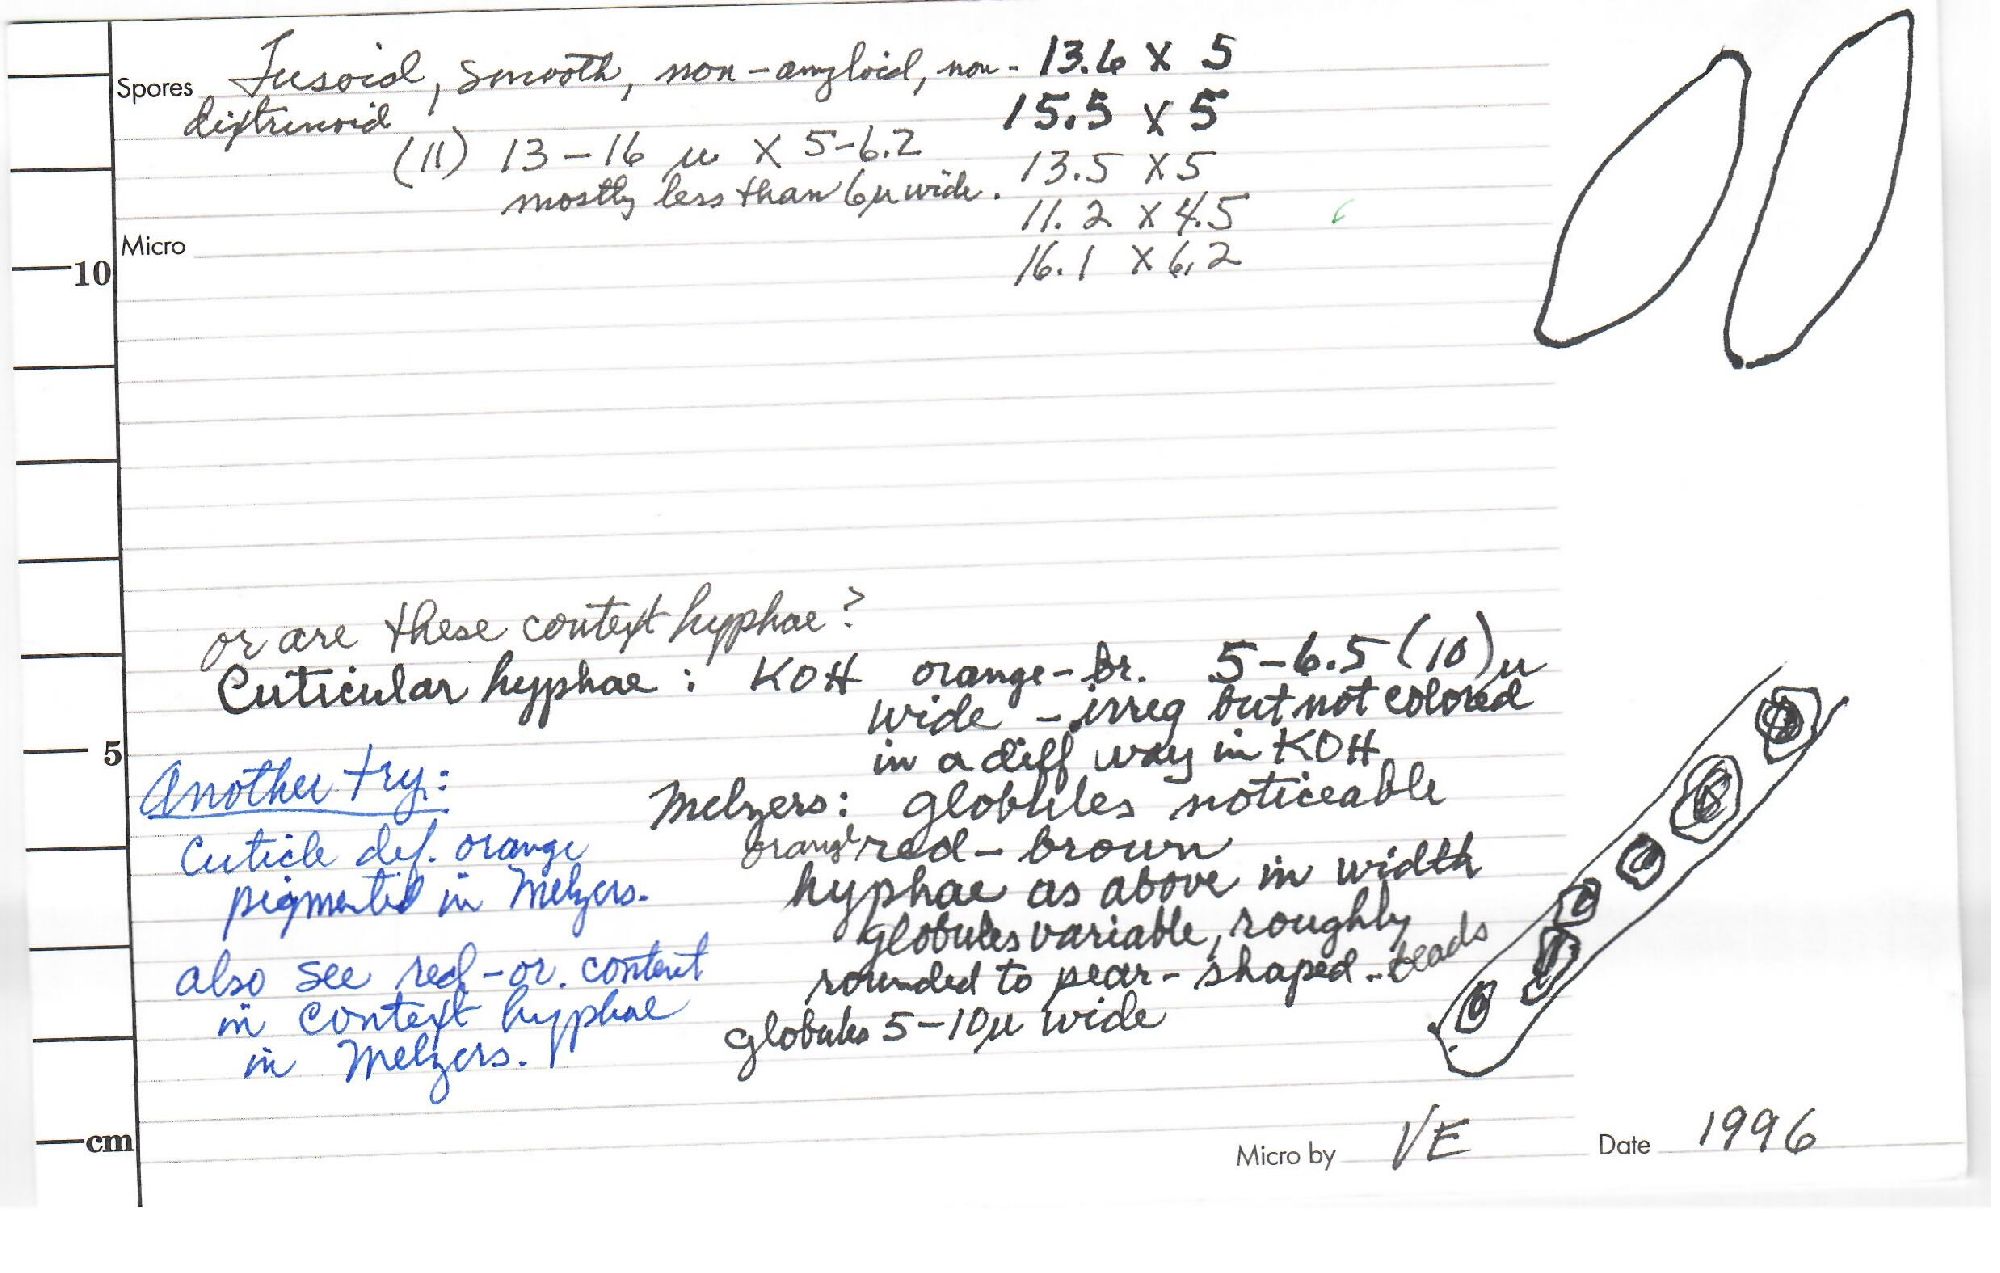 Spores Fusoid, smooth, non-amyloid, non-
dextrinoid
(11) 13-16 μ X 5-6.2
mostly less than 6μ wide.
13.6 X 5
15.5 X 5
13.5 X 5
11.2 X 4.5
16.1 X 6.2
Micro
10
or are these context hyphae?
Cuticular hyphae: KOH orange-br. 5-6.5 (10) μ
wide - irreg but not colored
in a diff way in KOH
5
Melzers: globules noticeable
orange red-brown
hyphae as above in width
globules variable, roughly
rounded to pear-shaped -- beads
globules 5-10μ wide
Another try:
Cuticle def. orange
pigmented in Melzers.
also see red-or. content
in context hyphae
in Melzers.
cm
Micro by VE Date 1996